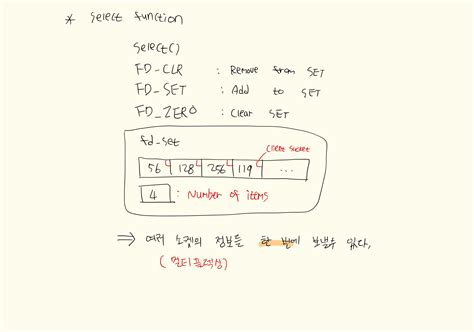 * select function
select()
FD_CLR : Remove from SET
FD_SET : Add to SET
FD_ZERO : Clear SET
fd_set
client socket
56 128 256 119 ...
4 : Number of items
⇒ 여러 소켓의 정보를 한 번에 보낼수 있다.
(멀티플렉싱)